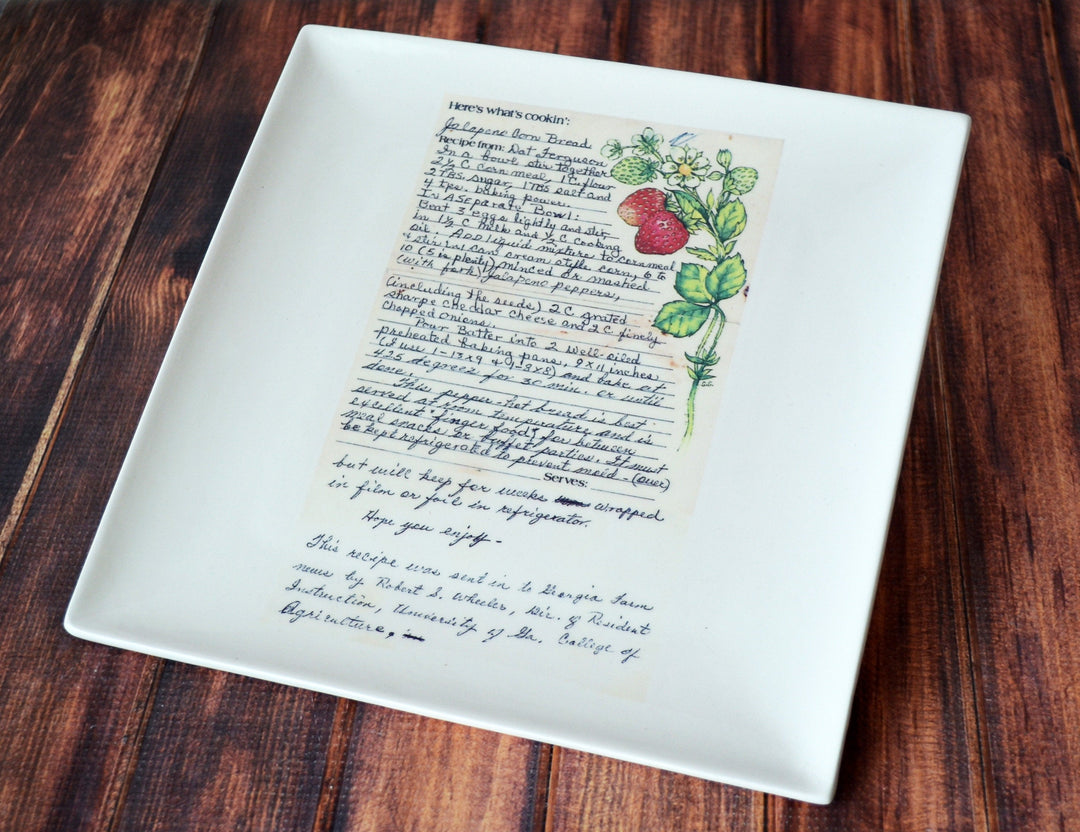 Here's what's cookin':
Jalapeno Corn Bread
Recipe from: Dat Ferguson
In a bowl stir together
2½ C. corn meal, 1 C. flour
2 TBS. sugar, 1 TBS salt and
4 tps. baking power.
In A SEparate Bowl:
Beat 3 eggs lightly and stir
in 1½ C milk and ½ C cooking
oil. Add liquid mixture to cornmeal
& stir in 1 can cream style corn, 6 to
10 (5 is plenty) minced or mashed
(with fork) jalapeno peppers,
(including the seeds) 2 C. grated
sharpe cheddar cheese and 2 C. finely
chopped onions.
Pour Batter into 2 well-oiled
preheated baking pans, 9 x 11 inches
(I use 1-13x9 & 1-8x8) and bake at
425 degrees for 30 min. or until
done.
This pepper-hot bread is best
served at room temperature and is
excellent "finger food" for between
meal snacks or buffet parties. It must
be kept refrigerated to prevent mold - (over)
Serves:
but will keep for weeks wrapped
in film or foil in refrigerator.
Hope you enjoy-
This recipe was sent in to Georgia Farm
news by Robert S. Wheeler, Dir. of Resident
Instruction, University of Ga. College of
Agriculture,